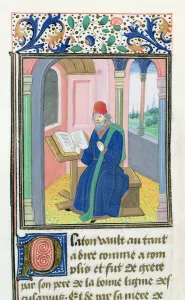 Platon vault autant
a dire comme acom
plis et fut de grece
par son pere de la bonne ligne des
culapius. Et de par sa mere de